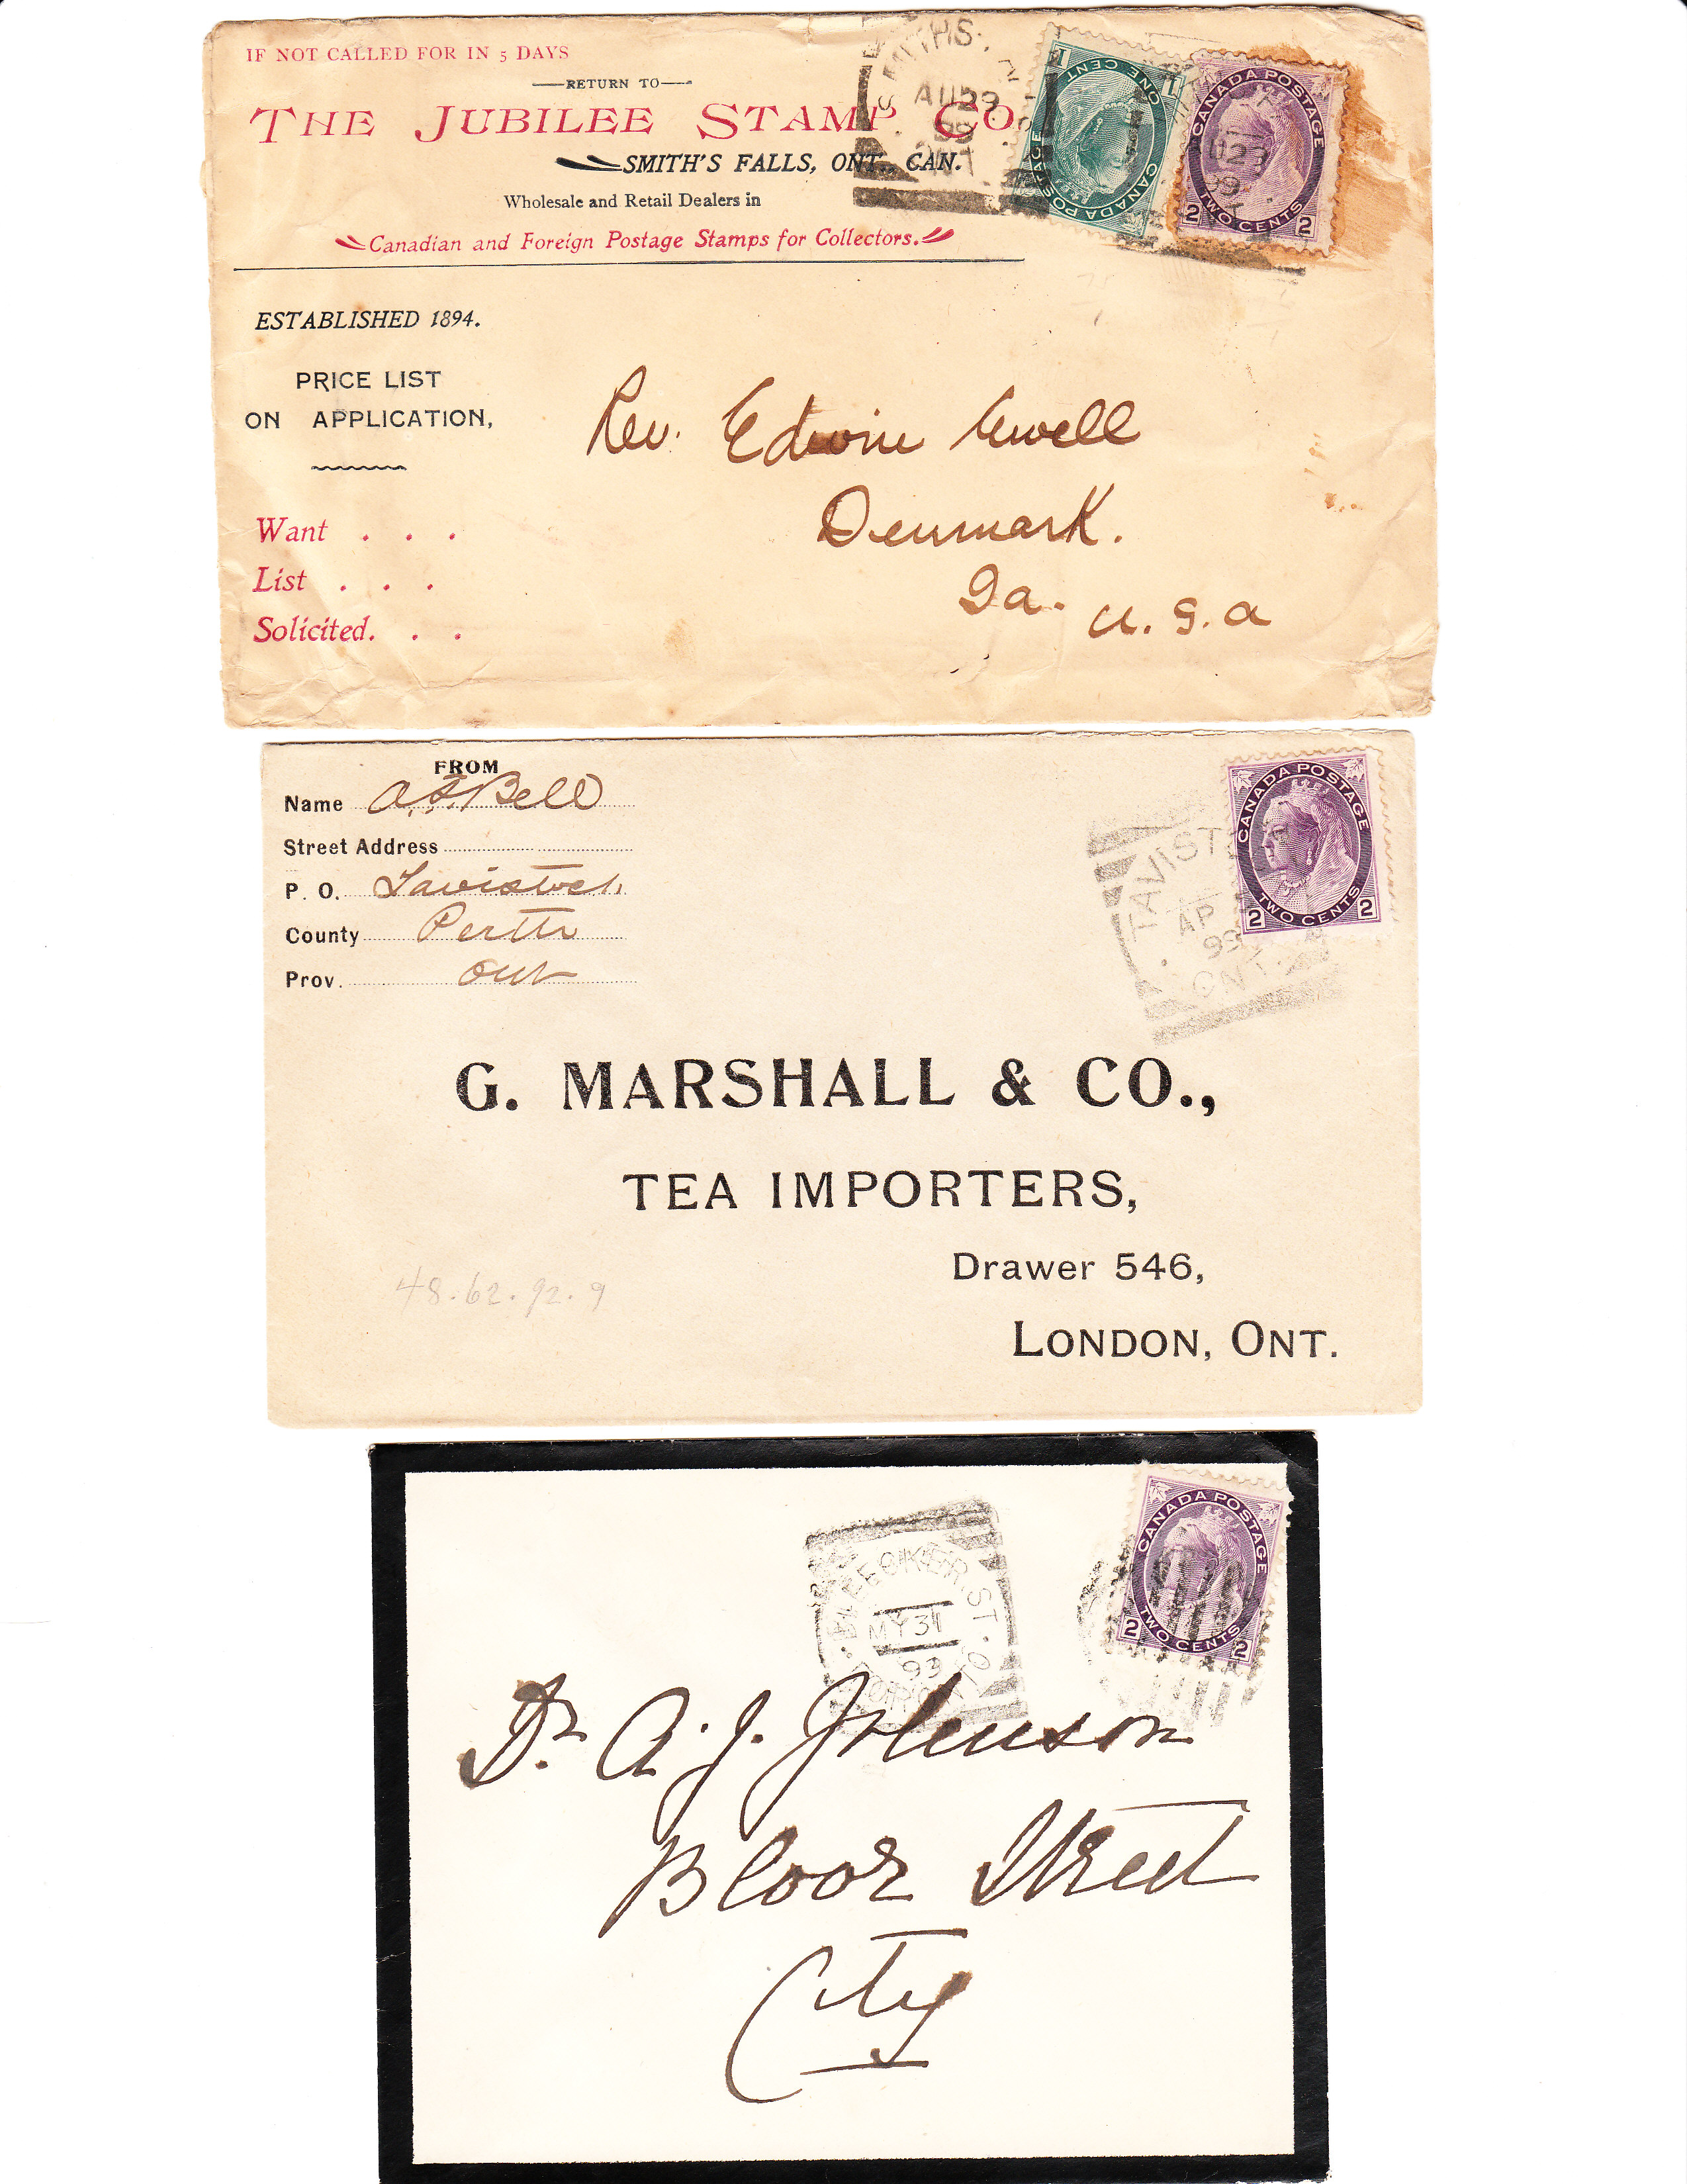 IF NOT CALLED FOR IN 5 DAYS
RETURN TO
THE JUBILEE STAMP CO
SMITH'S FALLS, ONT. CAN.
Wholesale and Retail Dealers in
Canadian and Foreign Postage Stamps for Collectors.
SMITHS
AU 29
99
ONT
ONE CENT
1 1
CANADA POSTAGE
CANADA POSTAGE
U 29
99
2 TWO CENTS 2
ESTABLISHED 1894.
PRICE LIST
ON APPLICATION,
Want . . .
List . . .
Solicited. . .
Rev. Edwin Ewell
Denmark.
Ia. U.S.A
FROM
Name A. Bell
Street Address
P. O. Tavistock
County Perth
Prov. Ont
CANADA POSTAGE
2 TWO CENTS 2
TAVIST
AP
99
ONT.
G. MARSHALL & CO.,
TEA IMPORTERS,
Drawer 546,
LONDON, ONT.
48.62.92.9
CANADA POSTAGE
2 TWO CENTS 2
BLEECKER. ST.
MY 31
99
TORONTO
Dr. A. J. Johnson
Bloor Street
City